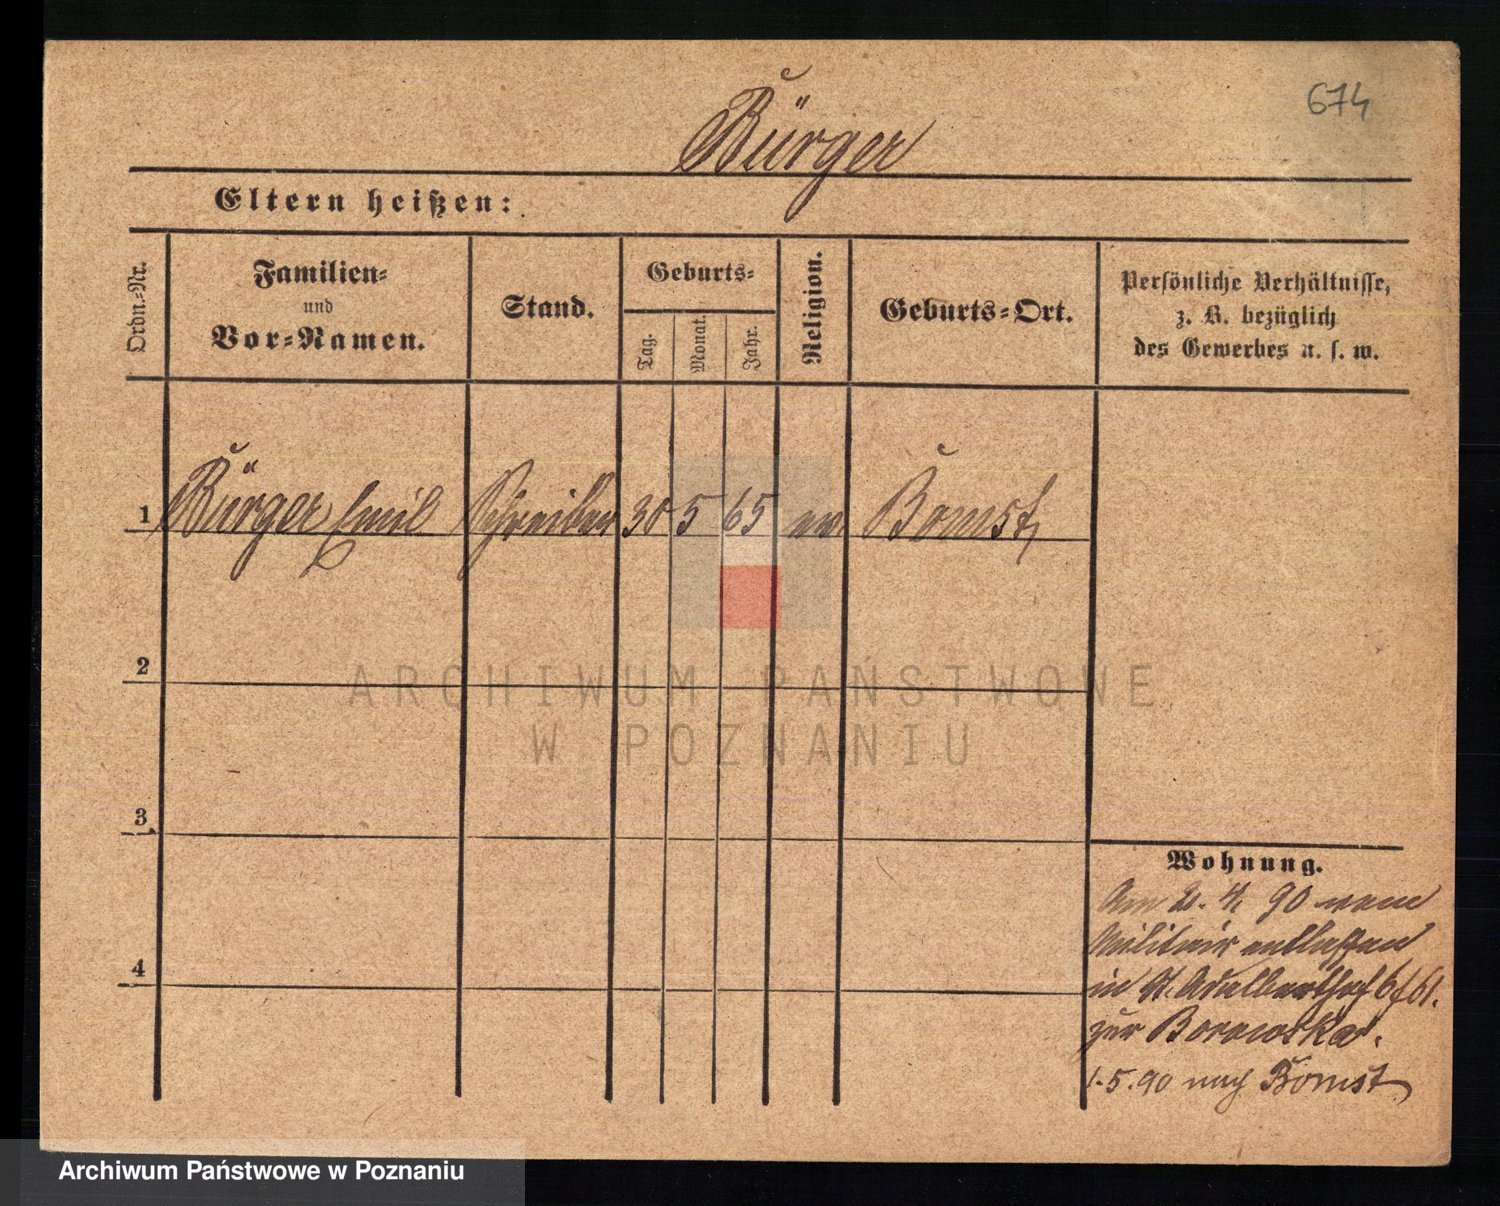 674
Bürger
Eltern heißen:
Ordn.-Nr.
Familien-
und
Vor-Namen.
Stand.
Geburts-
Tag.
Monat.
Jahr.
Religion.
Geburts-Ort.
Persönliche Verhältnisse,
z. B. bezüglich
des Gewerbes u. s. w.
1 Bürger Emil Schreiber 30 5 65 ev. Bomst
2
ARCHIWUM PAŃSTWOWE
W POZNANIU
3
4
Wohnung.
Am 21. 4. 90 vom
Militair entlassen
in St. Adalberthof 61.
zur Borowska.
1.5.90 nach Bomst
Archiwum Państwowe w Poznaniu